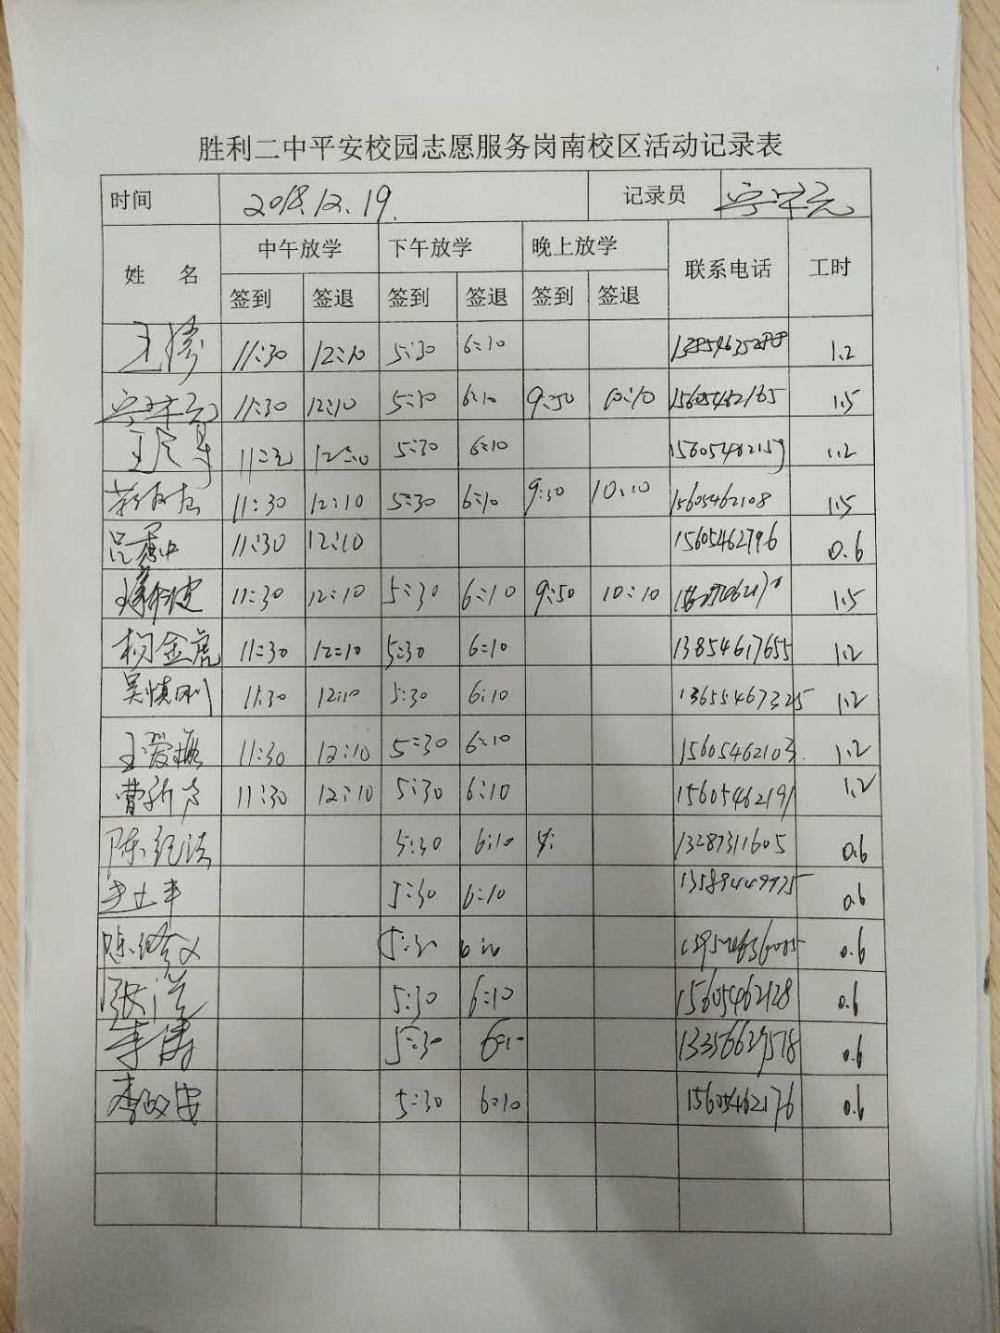 胜利二中平安校园志愿服务岗南校区活动记录表
时间 2018.12.19. 记录员
姓 名 中午放学 下午放学 晚上放学 联系电话 工时
签到 签退 签到 签退 签到 签退
王涛 11:30 12:10 5:30 6:10 1.2
11:30 12:10 5:30 6:10 9:50 10:10 15605462165 1.5
12:10 5:30 6:10 15605462159 1.2
11:30 12:10 5:30 6:10 9:50 10:10 15605462108 1.5
11:30 12:10 15605462796 0.6
11:30 12:10 5:30 6:10 9:50 10:10 1.5
杨金虎 11:30 12:10 5:30 6:10 13854617655 1.2
吴慎刚 11:30 12:10 5:30 6:10 13655467325 1.2
王爱振 11:30 12:10 5:30 6:10 15605462103. 1.2
11:30 12:10 5:30 6:10 15605462191 1.2
陈纪法 5:30 6:10 13287311605 0.6
5:30 6:10 13589449975 0.6
5:30 6:10 0.6
张洪 5:30 6:10 15605462128 0.6
李涛 5:30 6:10 13356629578 0.6
5:30 6:10 15605462176 0.6